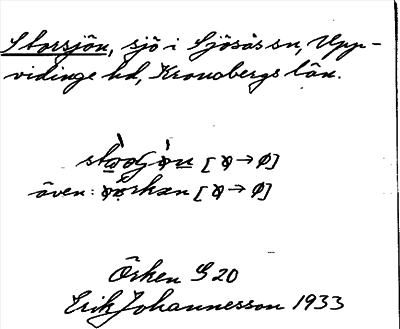 Storsjön, sjö i Sjösås sn, Upp-
vidinge hd, Kronobergs län.
även:
Örken S 20
Erik Johannesson 1933